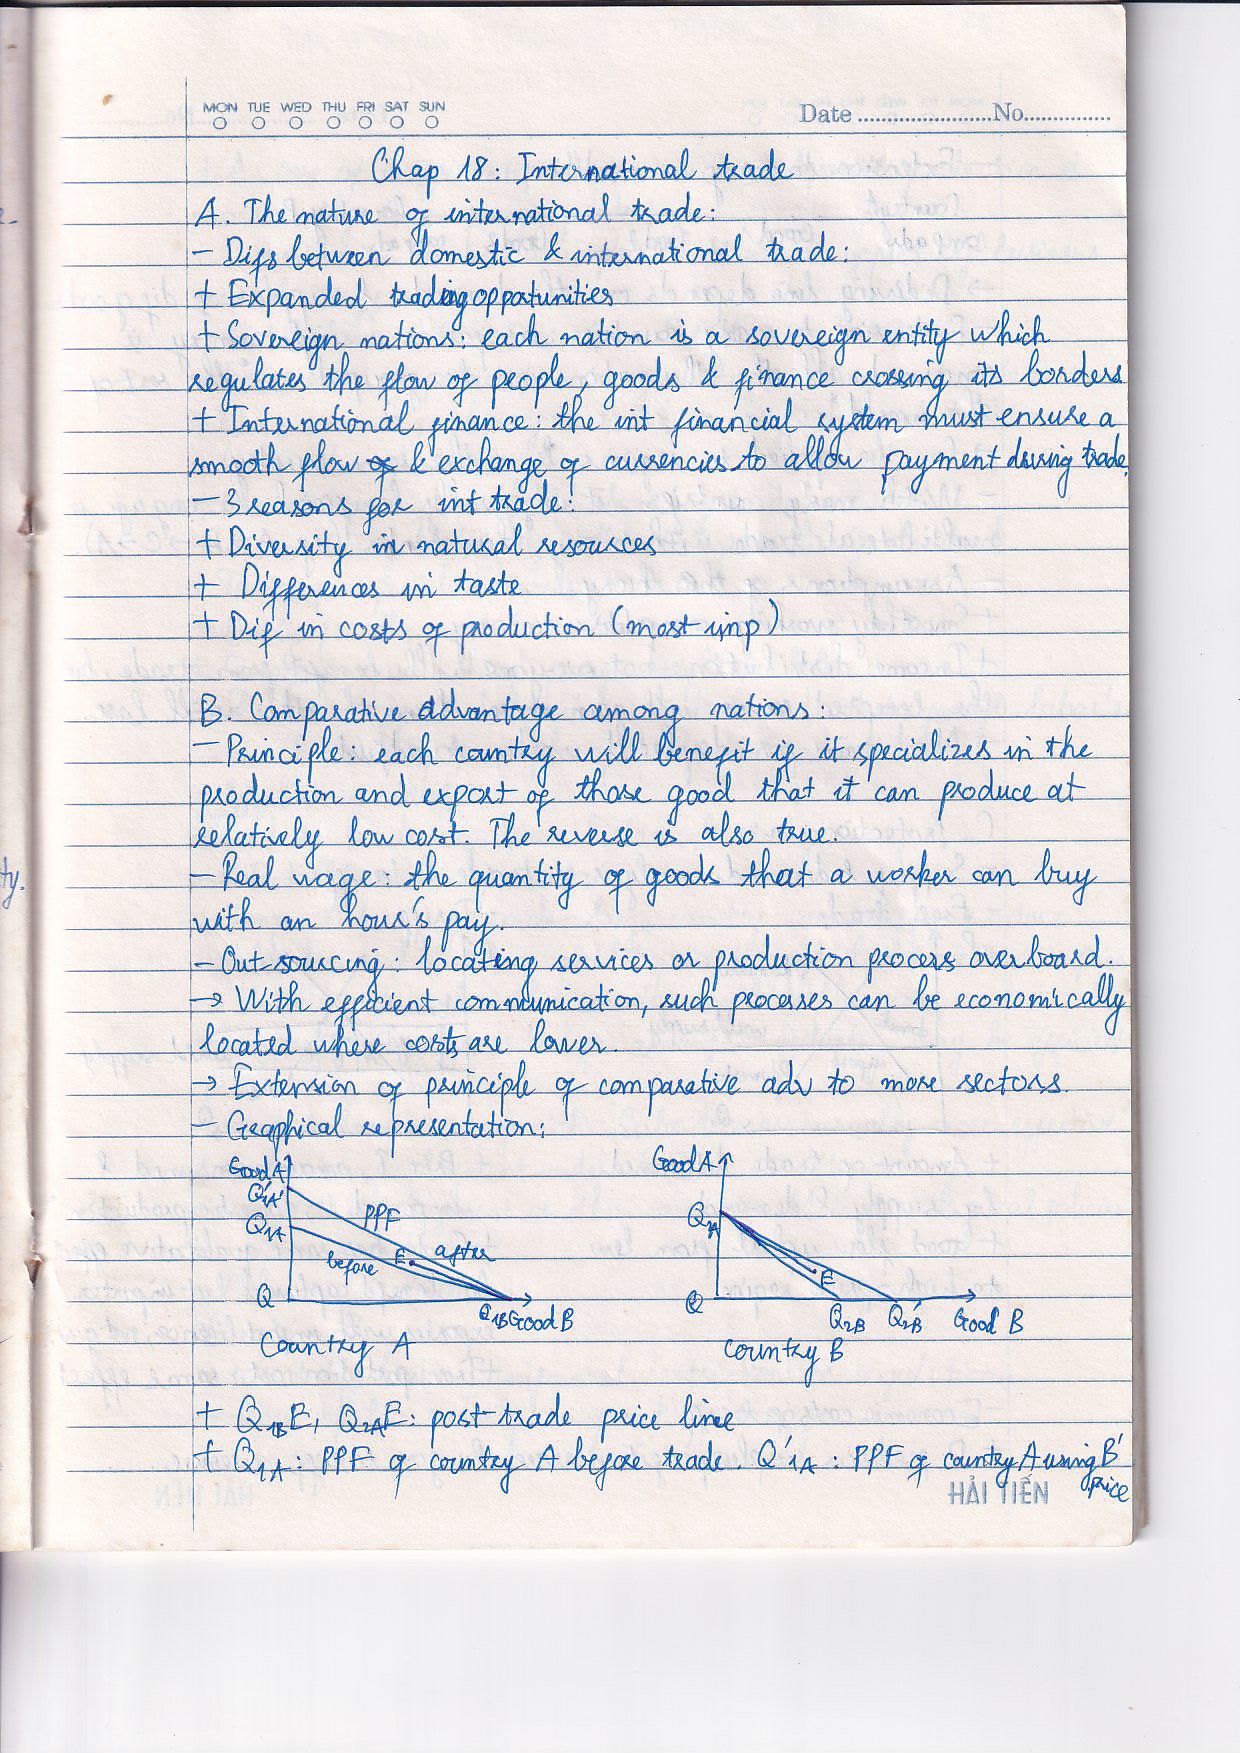 MON TUE WED THU FRI SAT SUN
Date ........................No...............
Chap 18: International trade
A. The nature of international trade:
- Difs between domestic & international trade:
+ Expanded trading opportunities
+ Sovereign nations: each nation is a sovereign entity which
regulates the flow of people, goods & finance crossing its borders
+ International finance: the int financial system must ensure a
smooth flow & exchange of currencies to allow payment during trade.
- 3 reasons for int trade:
+ Diversity in natural resources
+ Differences in taste
+ Dif in costs of production (most imp)
B. Comparative advantage among nations:
- Principle: each country will benefit if it specializes in the
production and export of those good that it can produce at
relatively low cost. The reverse is also true.
- Real wage: the quantity of goods that a worker can buy
with an hour's pay.
ty.
- Outsourcing: locating services or production process overboard.
→ With efficient communication, such processes can be economically
located where costs are lower.
→ Extension of principle of comparative adv to more sectors.
- Graphical representation:
Good A
Q'1A
Q1A
PPF
before
E
after
Q
Q1B Good B
Country A
Good A
Q2A
E
Q
Q2B Q2B' Good B
Country B
+ Q1BE, Q2AE: post-trade price line
+ Q1A: PPF of country A before trade. Q'1A: PPF of country A using B'
price
HẢI TIẾN